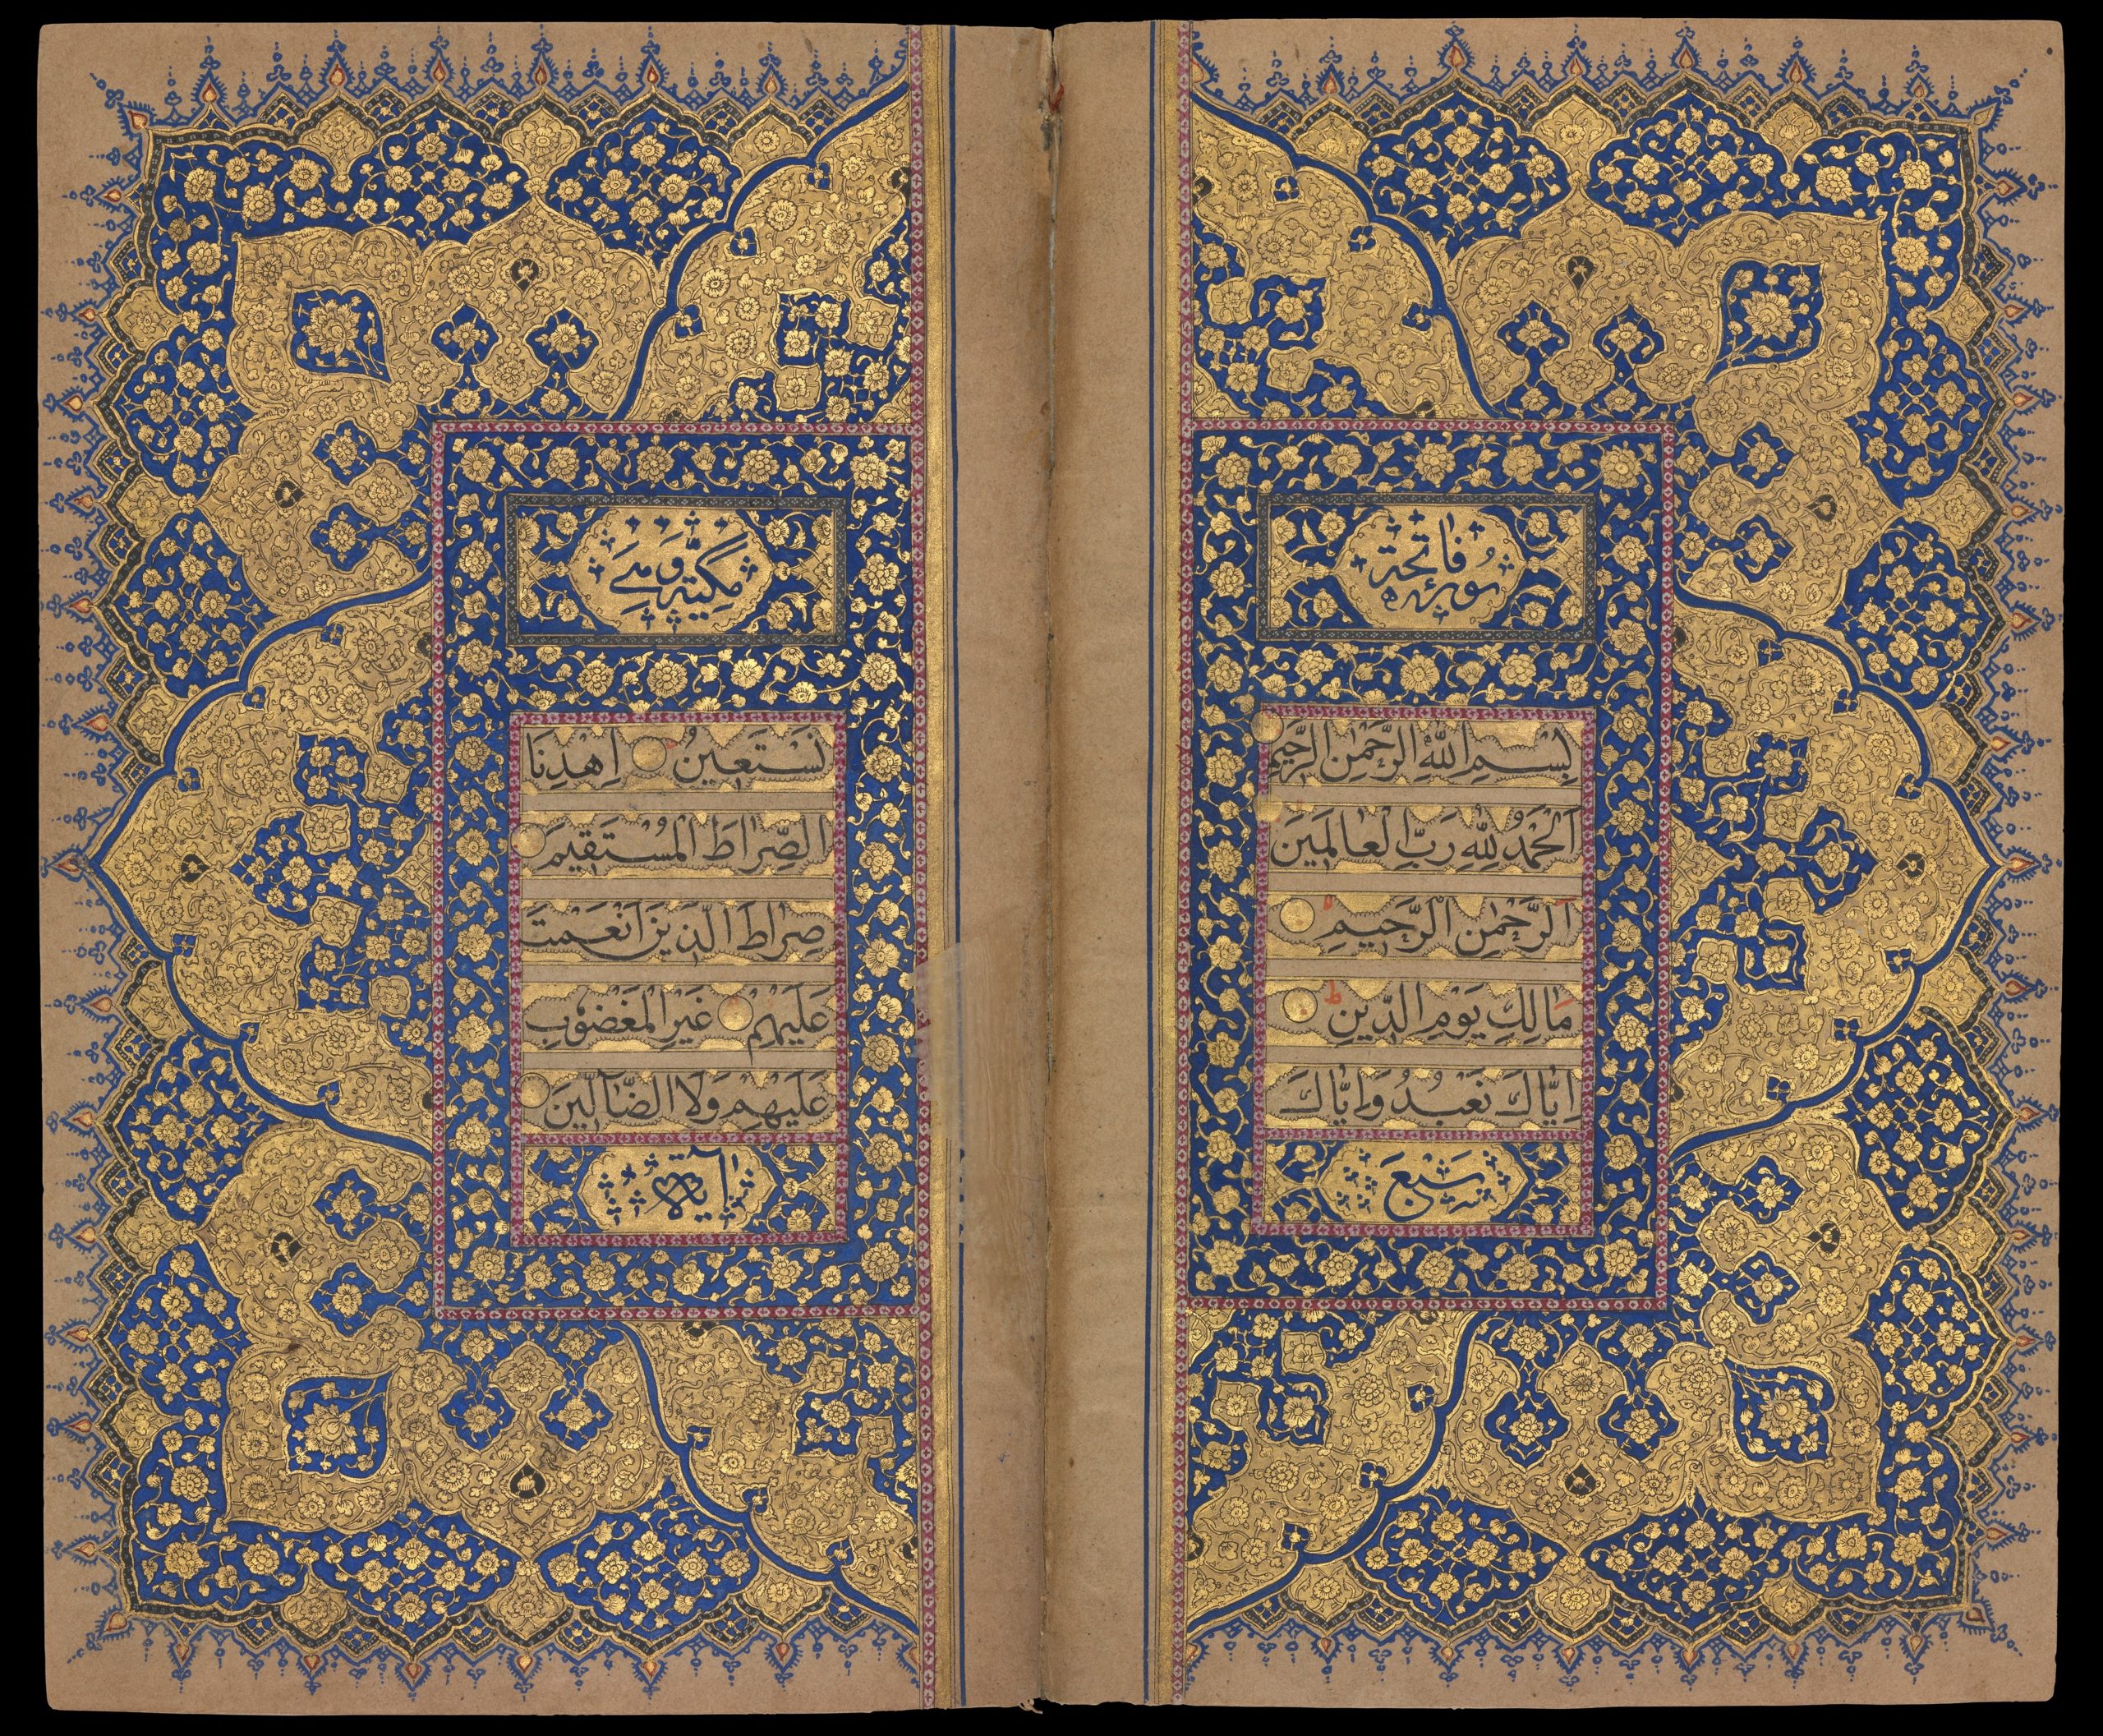 سورة فاتحة
بِسْمِ اللهِ الرَّحْمٰنِ الرَّحِيمِ
اَلْحَمْدُ لِلّٰهِ رَبِّ الْعَالَمِينَ
اَلرَّحْمٰنِ الرَّحِيمِ
مَالِكِ يَوْمِ الدِّينِ
اِيَّاكَ نَعْبُدُ وَاِيَّاكَ
سَبْعَ
مَكِّيَّة وَ هِيَ
نَسْتَعِينُ اِهْدِنَا
الصِّرَاطَ الْمُسْتَقِيمَ
صِرَاطَ الَّذِينَ اَنْعَمْتَ
عَلَيْهِمْ غَيْرِ الْمَغْضُوبِ
عَلَيْهِمْ وَلَا الضَّآلِّينَ